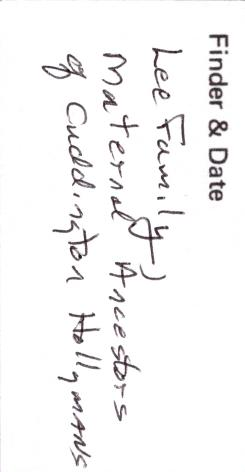 Finder & Date
Lee Family)
Maternal Ancestors
of Cuddington Hollymans